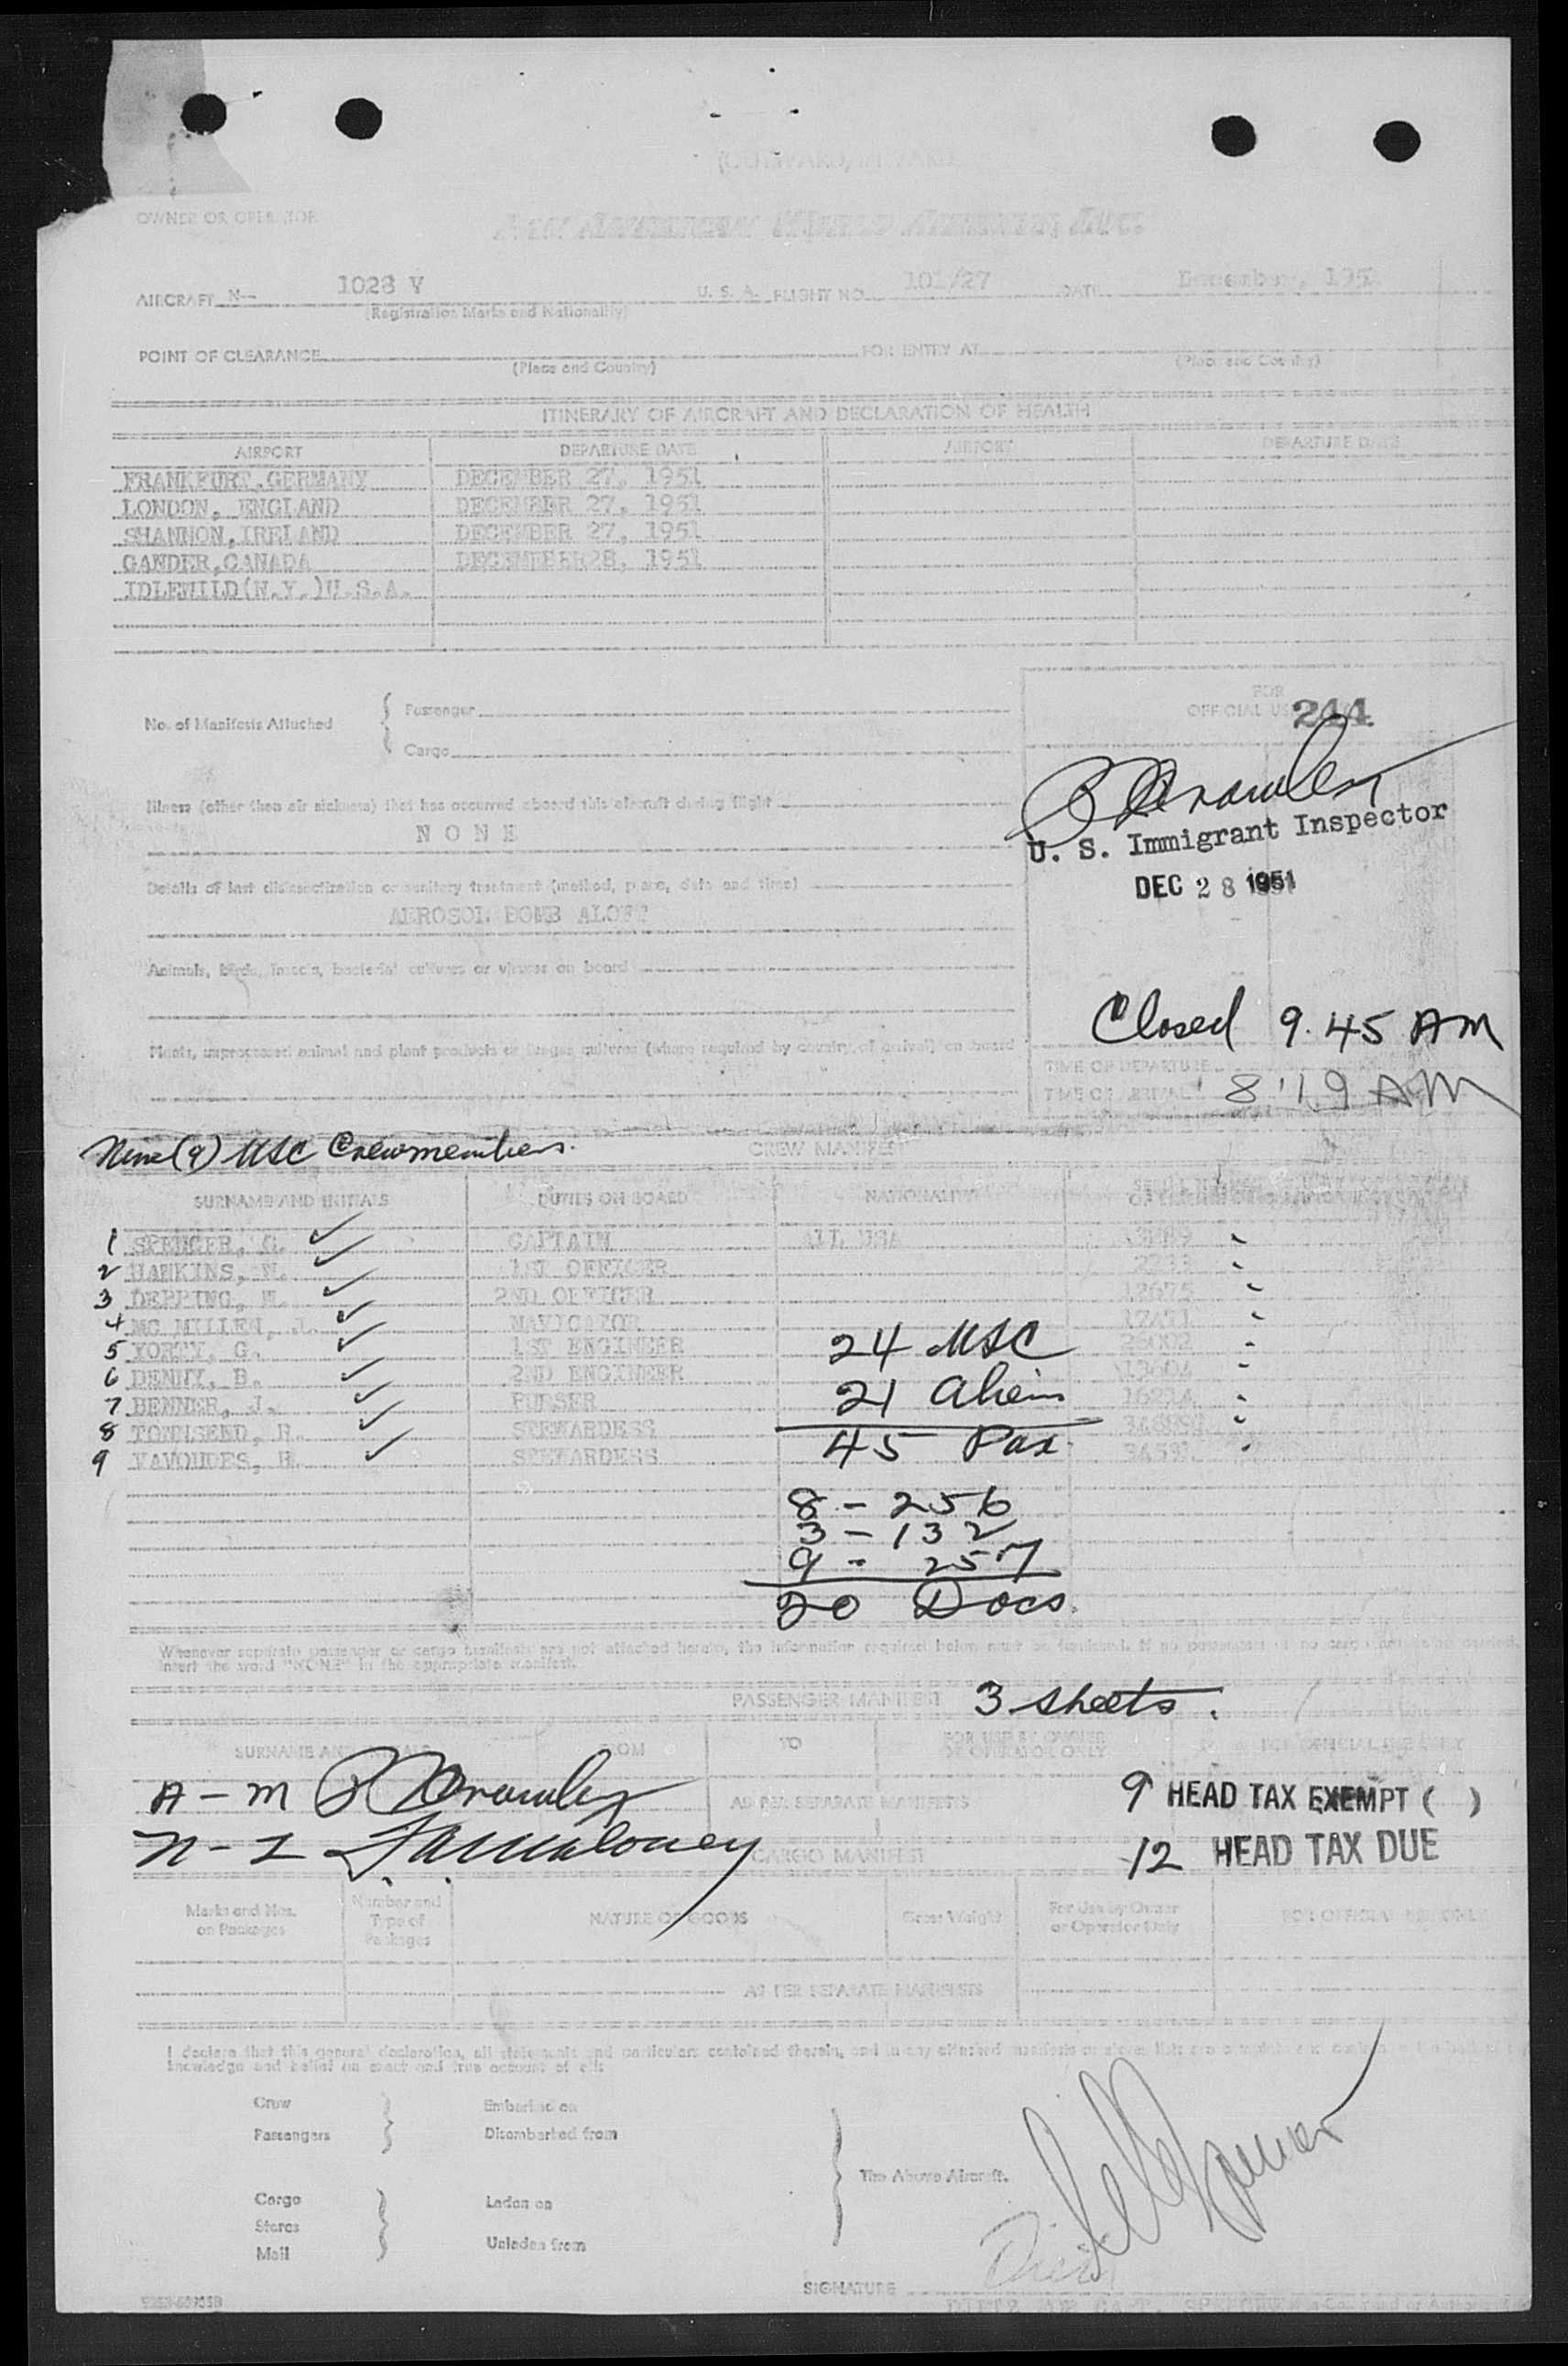 (OUTWARD, INWARD)
OWNER OR OPERATOR Pan American World Airways, Inc.
AIRCRAFT N- 1028 V U. S. A. FLIGHT NO. 101/27 DATE December, 1951
(Registration Marks and Nationality)
POINT OF CLEARANCE FOR ENTRY AT
(Place and Country) (Place and Country)
ITINERARY OF AIRCRAFT AND DECLARATION OF HEALTH
AIRPORT DEPARTURE DATE AIRPORT DEPARTURE DATE
FRANKFURT, GERMANY DECEMBER 27, 1951
LONDON, ENGLAND DECEMBER 27, 1951
SHANNON, IRELAND DECEMBER 27, 1951
GANDER, CANADA DECEMBER 28, 1951
IDLEWILD(N.Y.)U.S.A.
No. of Manifests Attached { Passenger
Cargo
FOR
OFFICIAL USE
244
Illness (other than air sickness) that has occurred aboard this aircraft during flight
N O N E
U. S. Immigrant Inspector
DEC 28 1951
Details of last disinsectization or sanitary treatment (method, place, date and time)
AEROSOL BOMB ALOFT
Animals, birds, insects, bacterial cultures or viruses on board
Closed 9.45 AM
Plants, unprocessed animal and plant products or fungus cultures (where required by country of arrival) on board
TIME OF DEPARTURE
TIME OF ARRIVAL 8:19 AM
Nine (9) USC Crewmembers.
CREW MANIFEST
SURNAME AND INITIALS DUTIES ON BOARD NATIONALITY
1 SPENCER, G. ✓ CAPTAIN ALL USA
2 HAWKINS, W. ✓ 1ST OFFICER
3 DEPPING, W. ✓ 2ND OFFICER
4 MC MILLEN, J. ✓ NAVIGATOR
5 YORTY, G. ✓ 1ST ENGINEER 26002
6 DENNY, B. ✓ 2ND ENGINEER
7 BENNER, J. ✓ PURSER
8 TOWNSEND, H. ✓ STEWARDESS
9 VAVOUDES, H. ✓ STEWARDESS
24 USC
21 Aliens
45 Pax.
8 - 256
3 - 132
9 - 257
20 Docs.
Whenever separate passenger or cargo manifests are not attached hereto, the information required below must be furnished. If no passengers or no cargo are to be carried,
insert the word "NONE" in the appropriate manifest.
PASSENGER MANIFEST 3 sheets.
SURNAME AND INITIALS FROM TO FOR USE BY OWNER OR OPERATOR ONLY FOR OFFICIAL USE ONLY
A - M
AS PER SEPARATE MANIFESTS
9 HEAD TAX EXEMPT ( )
N - Z
12 HEAD TAX DUE
CARGO MANIFEST
Marks and Nos. on Packages Number and Type of Packages NATURE OF GOODS Gross Weight For Use by Owner or Operator Only FOR OFFICIAL USE ONLY
AS PER SEPARATE MANIFESTS
I declare that this general declaration, all statements and particulars contained therein, and in any attached manifests or
knowledge and belief an exact and true account of all:
Crew } Embarked on
Passengers Disembarked from
} The Above Aircraft.
Cargo } Laden on
Stores
Mail Unladen from
SIGNATURE
DIETZ FOR CAPT. SPENCER